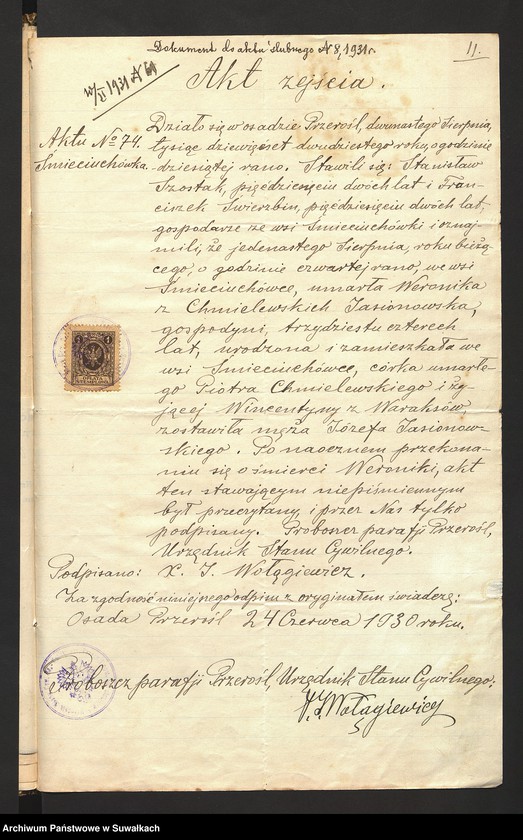 Dokument do aktu ślubnego № 8, 1931 r.
11.
Akt zejścia.
Aktu № 74.
Śmieciuchówka.
Działo się w osadzie Przerośl, dwunastego Sierpnia,
tysiąc dziewięćset dwudziestego roku, o godzinie
dziesiątej rano. Stawili się: Stanisław
Szostak, pięćdziesięciu dwóch lat i Fran-
ciszek Świerzbin, pięćdziesięciu dwóch lat,
gospodarze ze wsi Śmieciuchówki i oznaj-
mili, że jedenastego Sierpnia, roku bieżą-
cego, o godzinie czwartej rano, we wsi
Śmieciuchówce, umarła Weronika
z Chmielewskich Jasionowska,
gospodyni, trzydziestu czterech
lat, urodzona i zamieszkała we
wsi Śmieciuchówce, córka umarłe-
go Piotra Chmielewskiego i ży-
jącej Wincentyny z Waraksów,
zostawiła męża Józefa Jasionow-
skiego. Po naocznem przekona-
niu się o śmierci Weroniki, akt
ten stawającym niepiśmiennym
był przeczytany, i przez Nas tylko
podpisany. Proboszcz parafji Przerośl,
Urzędnik Stanu Cywilnego.
Podpisano: X. J. Wołągiewicz.
Za zgodność niniejszego odpisu z oryginałem świadczę:
Osada Przerośl 24 Czerwca 1930 roku.
Proboszcz parafji Przerośl, Urzędnik Stanu Cywilnego:
X. J. Wołągiewicz
Archiwum Państwowe w Suwałkach